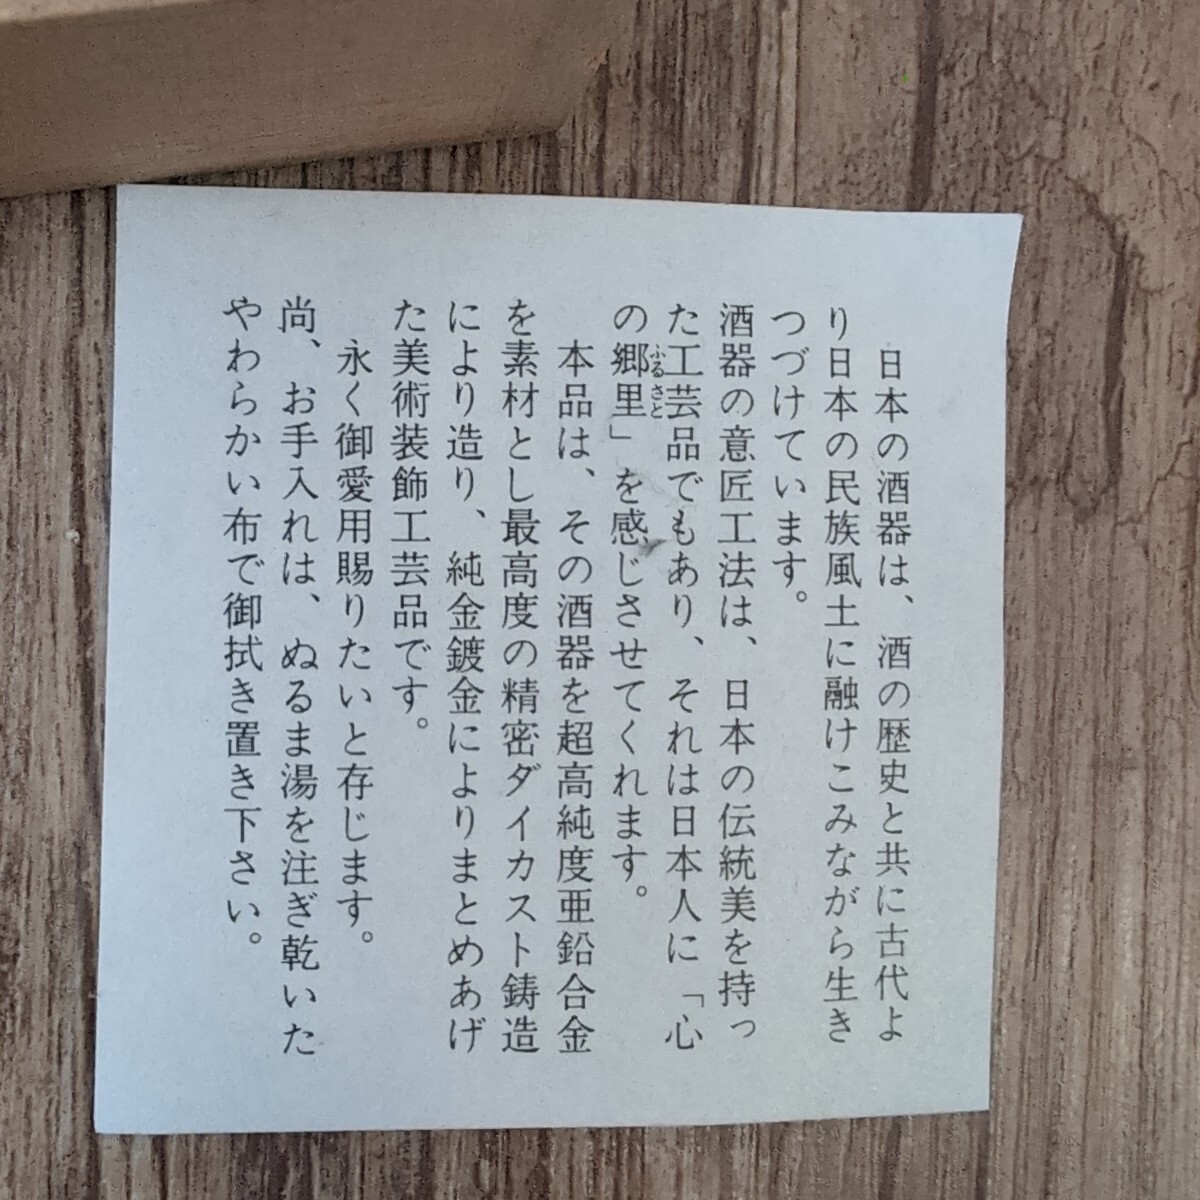 日本の酒器は、酒の歴史と共に古代よ
り日本の民族風土に融けこみながら生き
つづけています。
酒器の意匠工法は、日本の伝統美を持っ
た工芸品でもあり、それは日本人に「心
の郷里」を感じさせてくれます。
ふるさと
本品は、その酒器を超高純度亜鉛合金
を素材とし最高度の精密ダイカスト鋳造
により造り、純金鍍金によりまとめあげ
た美術装飾工芸品です。
永く御愛用賜りたいと存じます。
尚、お手入れは、ぬるま湯を注ぎ乾いた
やわらかい布で御拭き置き下さい。